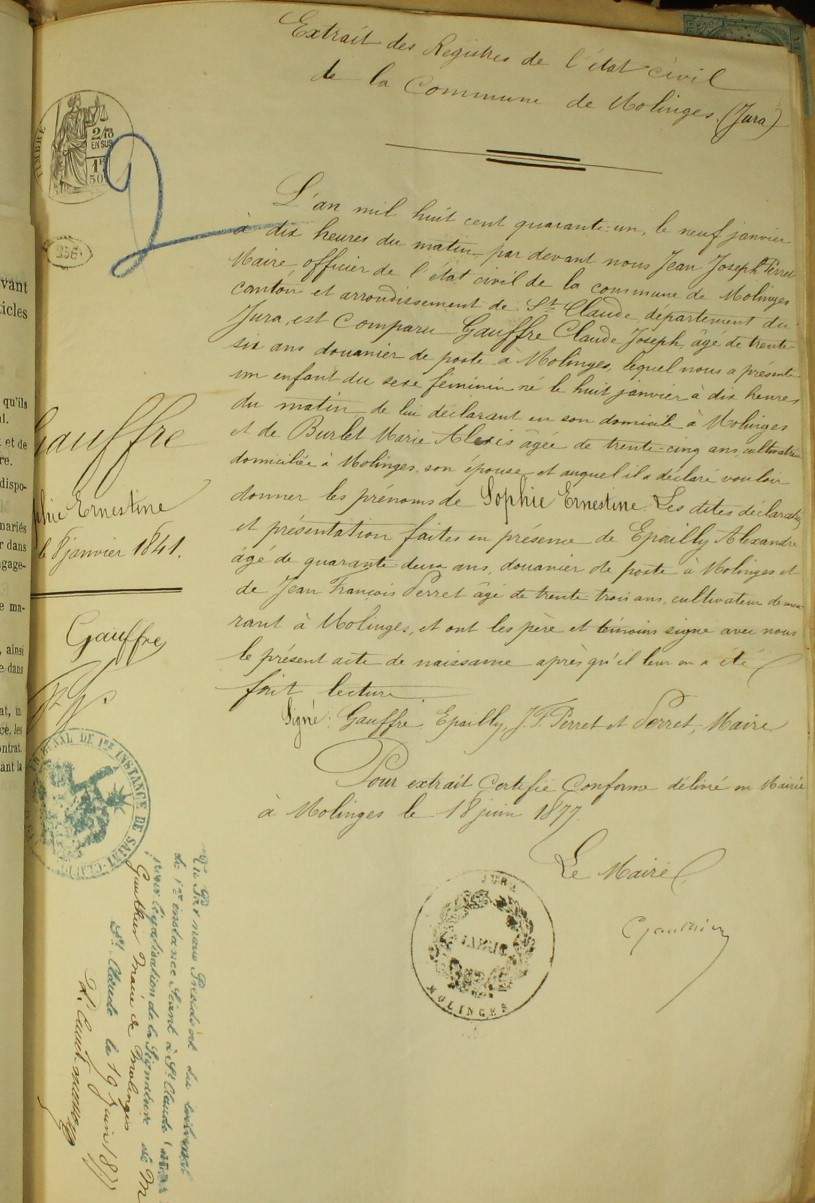 Extrait des Registres de l'état civil
de la Commune de Molinges (Jura)
TIMBRE
2/10
EN SUS
1F
50
2
L'an mil huit cent quarante-un, le neuf janvier
à dix heures du matin par devant nous Jean Joseph Perret
Maire officier de l'état civil de la commune de Molinges
canton et arrondissement de St Claude département du
Jura, est comparu Gauffre Claude Joseph, âgé de trente-
six ans douanier de poste à Molinges, lequel nous a présenté
un enfant du sexe féminin né le huit janvier à dix heures
du matin de lui déclarant en son domicile à Molinges
et de Burlet Marie Alexis âgée de trente-cinq ans, cultivatrice
domiciliée à Molinges, son épouse et auquel il a déclaré vouloir
donner les prénoms de Sophie Ernestine. Les dites déclaration
et présentation faites en présence de Epailly Alexandre
âgé de quarante deux ans, douanier de poste à Molinges et
de Jean François Perret âgé de trente trois ans, cultivateur demeu-
rant à Molinges, et ont les père et témoins signé avec nous
le présent acte de naissance après qu'il leur en a été
fait lecture
Signé: Gauffre, Epailly, J. F. Perret et Perret, Maire
Pour extrait Certifié Conforme délivré en Mairie
à Molinges le 18 juin 1877
Le Maire
JURA
MOLINGES
Gauffre
phie Ernestine
le 8 janvier 1841.
Gauffre
TRIBUNAL DE 1RE INSTANCE DE SAINT-CLAUDE
Vu Par nous Président du tribunal
de 1re instance Séant à St Claude
pour légalisation de la Signature de M
Gauthier Maire de Molinges
St Claude le 19 juin 1877
vant
icles
qu'ils
et de
re.
dispo-
mariés
r dans
gage-
e ma-
, ainsi
e dans
at, u
cé, les
ontrat.
ant la